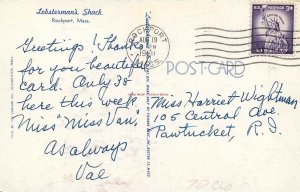 Lobsterman's Shack
Rockport, Mass.
ROCKPORT
AUG 19
MASS.
U.S. POSTAGE
3¢
POST CARD
Greetings! Thanks
for your beautiful
card. Only 38
here this week.
Miss "Miss Van."
As always
Val
Miss Harriet Wightman
105 Central Ave.
Pawtucket, R.I.